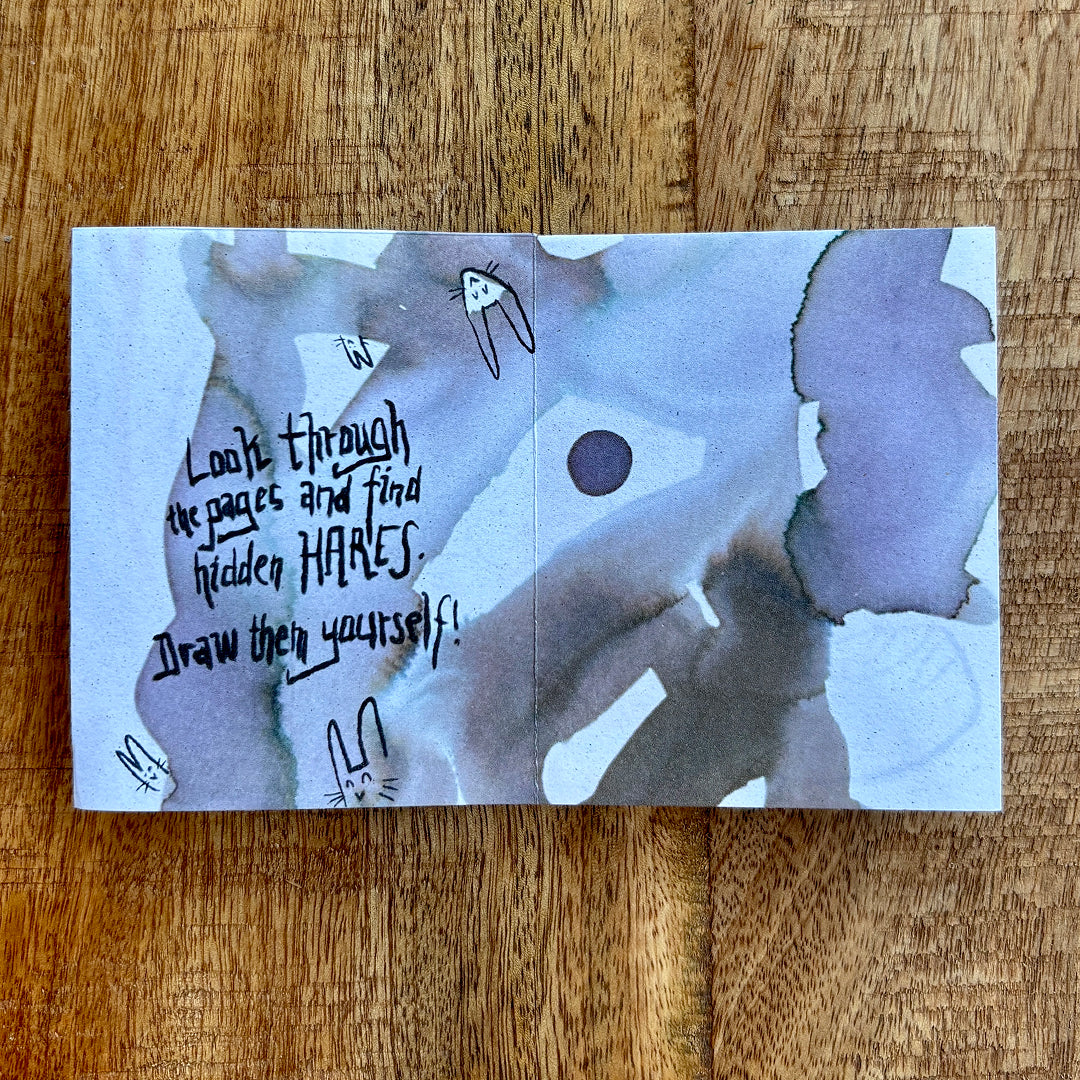 Look through
the pages and find
hidden HARES.
Draw them yourself!